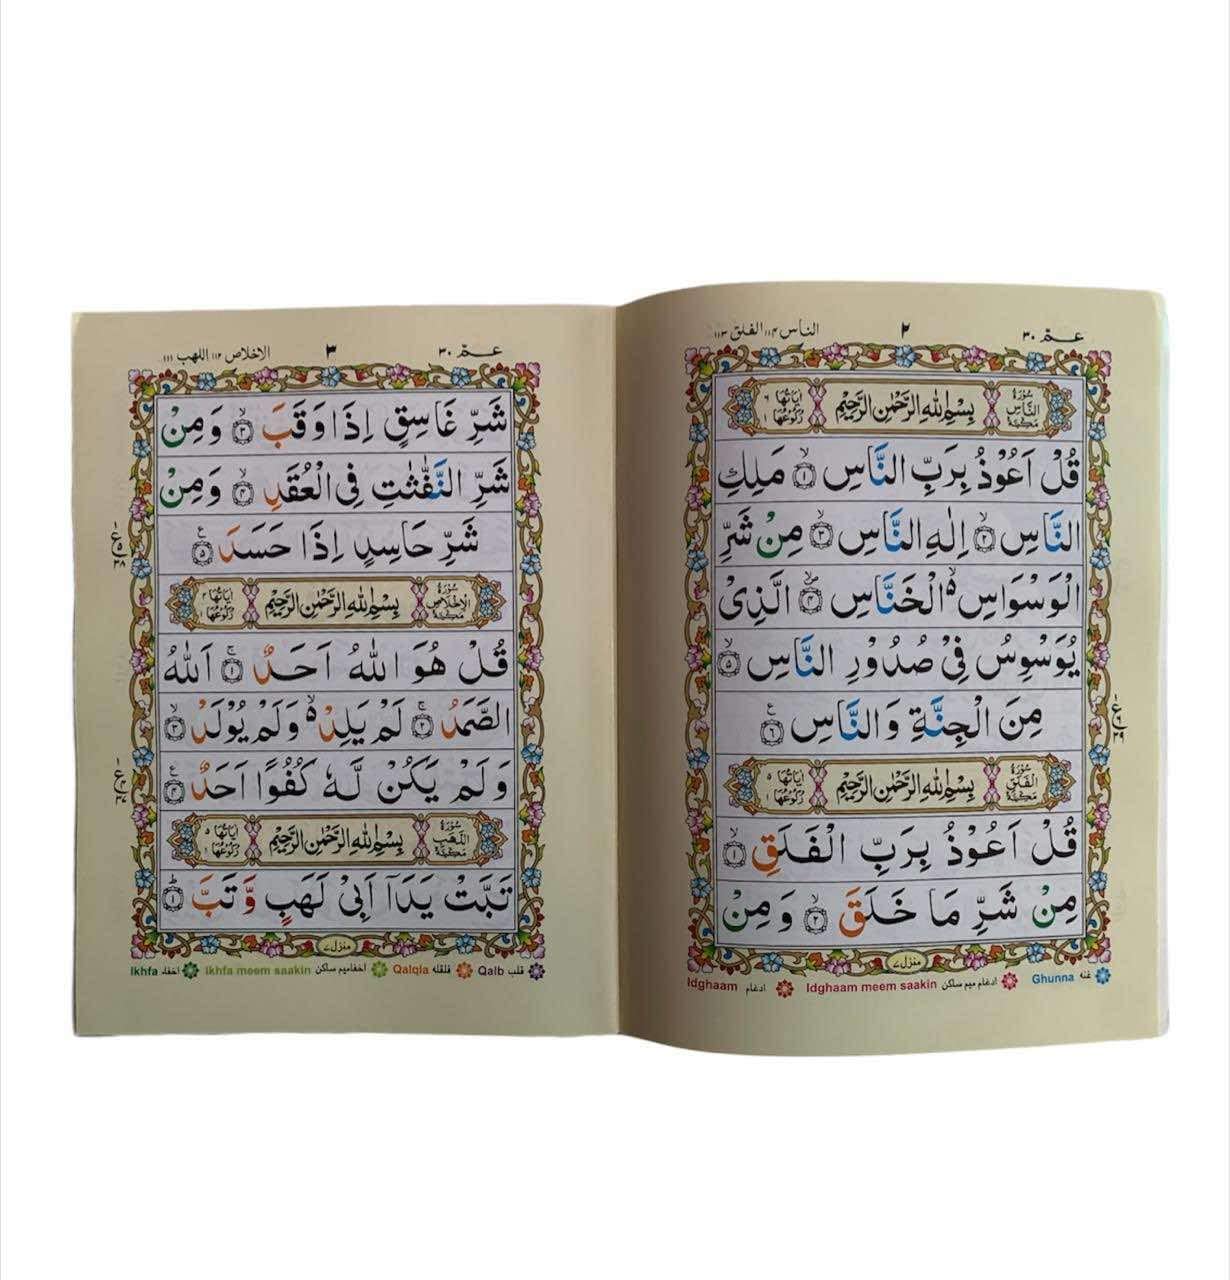 عمّ ٣٠
٢
الناس ١١٤ الفلق ١١٣
سُوْرَةُ النَّاسِ مَكِّيَّةٌ
بِسْمِ اللهِ الرَّحْمٰنِ الرَّحِيْمِ
اٰيَاتُهَا ٦ رُكُوْعُهَا ١
قُلْ اَعُوْذُ بِرَبِّ النَّاسِ ۙ﴿١﴾ مَلِكِ
النَّاسِ ۙ﴿٢﴾ اِلٰهِ النَّاسِ ۙ﴿٣﴾ مِنْ شَرِّ
الْوَسْوَاسِ ۙ۬ الْخَنَّاسِ ۪ۙ﴿٤﴾ الَّذِىْ
يُوَسْوِسُ فِىْ صُدُوْرِ النَّاسِ ۙ﴿٥﴾
مِنَ الْجِنَّةِ وَالنَّاسِ ﴿٦﴾
سُوْرَةُ الْفَلَقِ مَكِّيَّةٌ
بِسْمِ اللهِ الرَّحْمٰنِ الرَّحِيْمِ
اٰيَاتُهَا ٥ رُكُوْعُهَا ١
قُلْ اَعُوْذُ بِرَبِّ الْفَلَقِ ۙ﴿١﴾
مِنْ شَرِّ مَا خَلَقَ ۙ﴿٢﴾ وَمِنْ
منزل ٧
غنه Ghunna ادغام میم ساکن Idghaam meem saakin ادغام Idghaam
عمّ ٣٠
٣
الاخلاص ١١٢ اللهب ١١١
شَرِّ غَاسِقٍ اِذَا وَقَبَ ۙ﴿٣﴾ وَمِنْ
شَرِّ النَّفّٰثٰتِ فِى الْعُقَدِ ۙ﴿٤﴾ وَمِنْ
شَرِّ حَاسِدٍ اِذَا حَسَدَ ﴿٥﴾
سُوْرَةُ الْاِخْلَاصِ مَكِّيَّةٌ
بِسْمِ اللهِ الرَّحْمٰنِ الرَّحِيْمِ
اٰيَاتُهَا ٤ رُكُوْعُهَا ١
قُلْ هُوَ اللهُ اَحَدٌ ۚ﴿١﴾ اَللهُ
الصَّمَدُ ۚ﴿٢﴾ لَمْ يَلِدْ ۙ۬ وَلَمْ يُوْلَدْ ۙ﴿٣﴾
وَلَمْ يَكُنْ لَّهٗ كُفُوًا اَحَدٌ ﴿٤﴾
سُوْرَةُ اللَّهَبِ مَكِّيَّةٌ
بِسْمِ اللهِ الرَّحْمٰنِ الرَّحِيْمِ
اٰيَاتُهَا ٥ رُكُوْعُهَا ١
تَبَّتْ يَدَآ اَبِىْ لَهَبٍ وَّتَبَّ ؕ﴿١﴾
منزل ٧
قلب Qalb قلقله Qalqla اخفا میم ساکن Ikhfa meem saakin اخفا Ikhfa